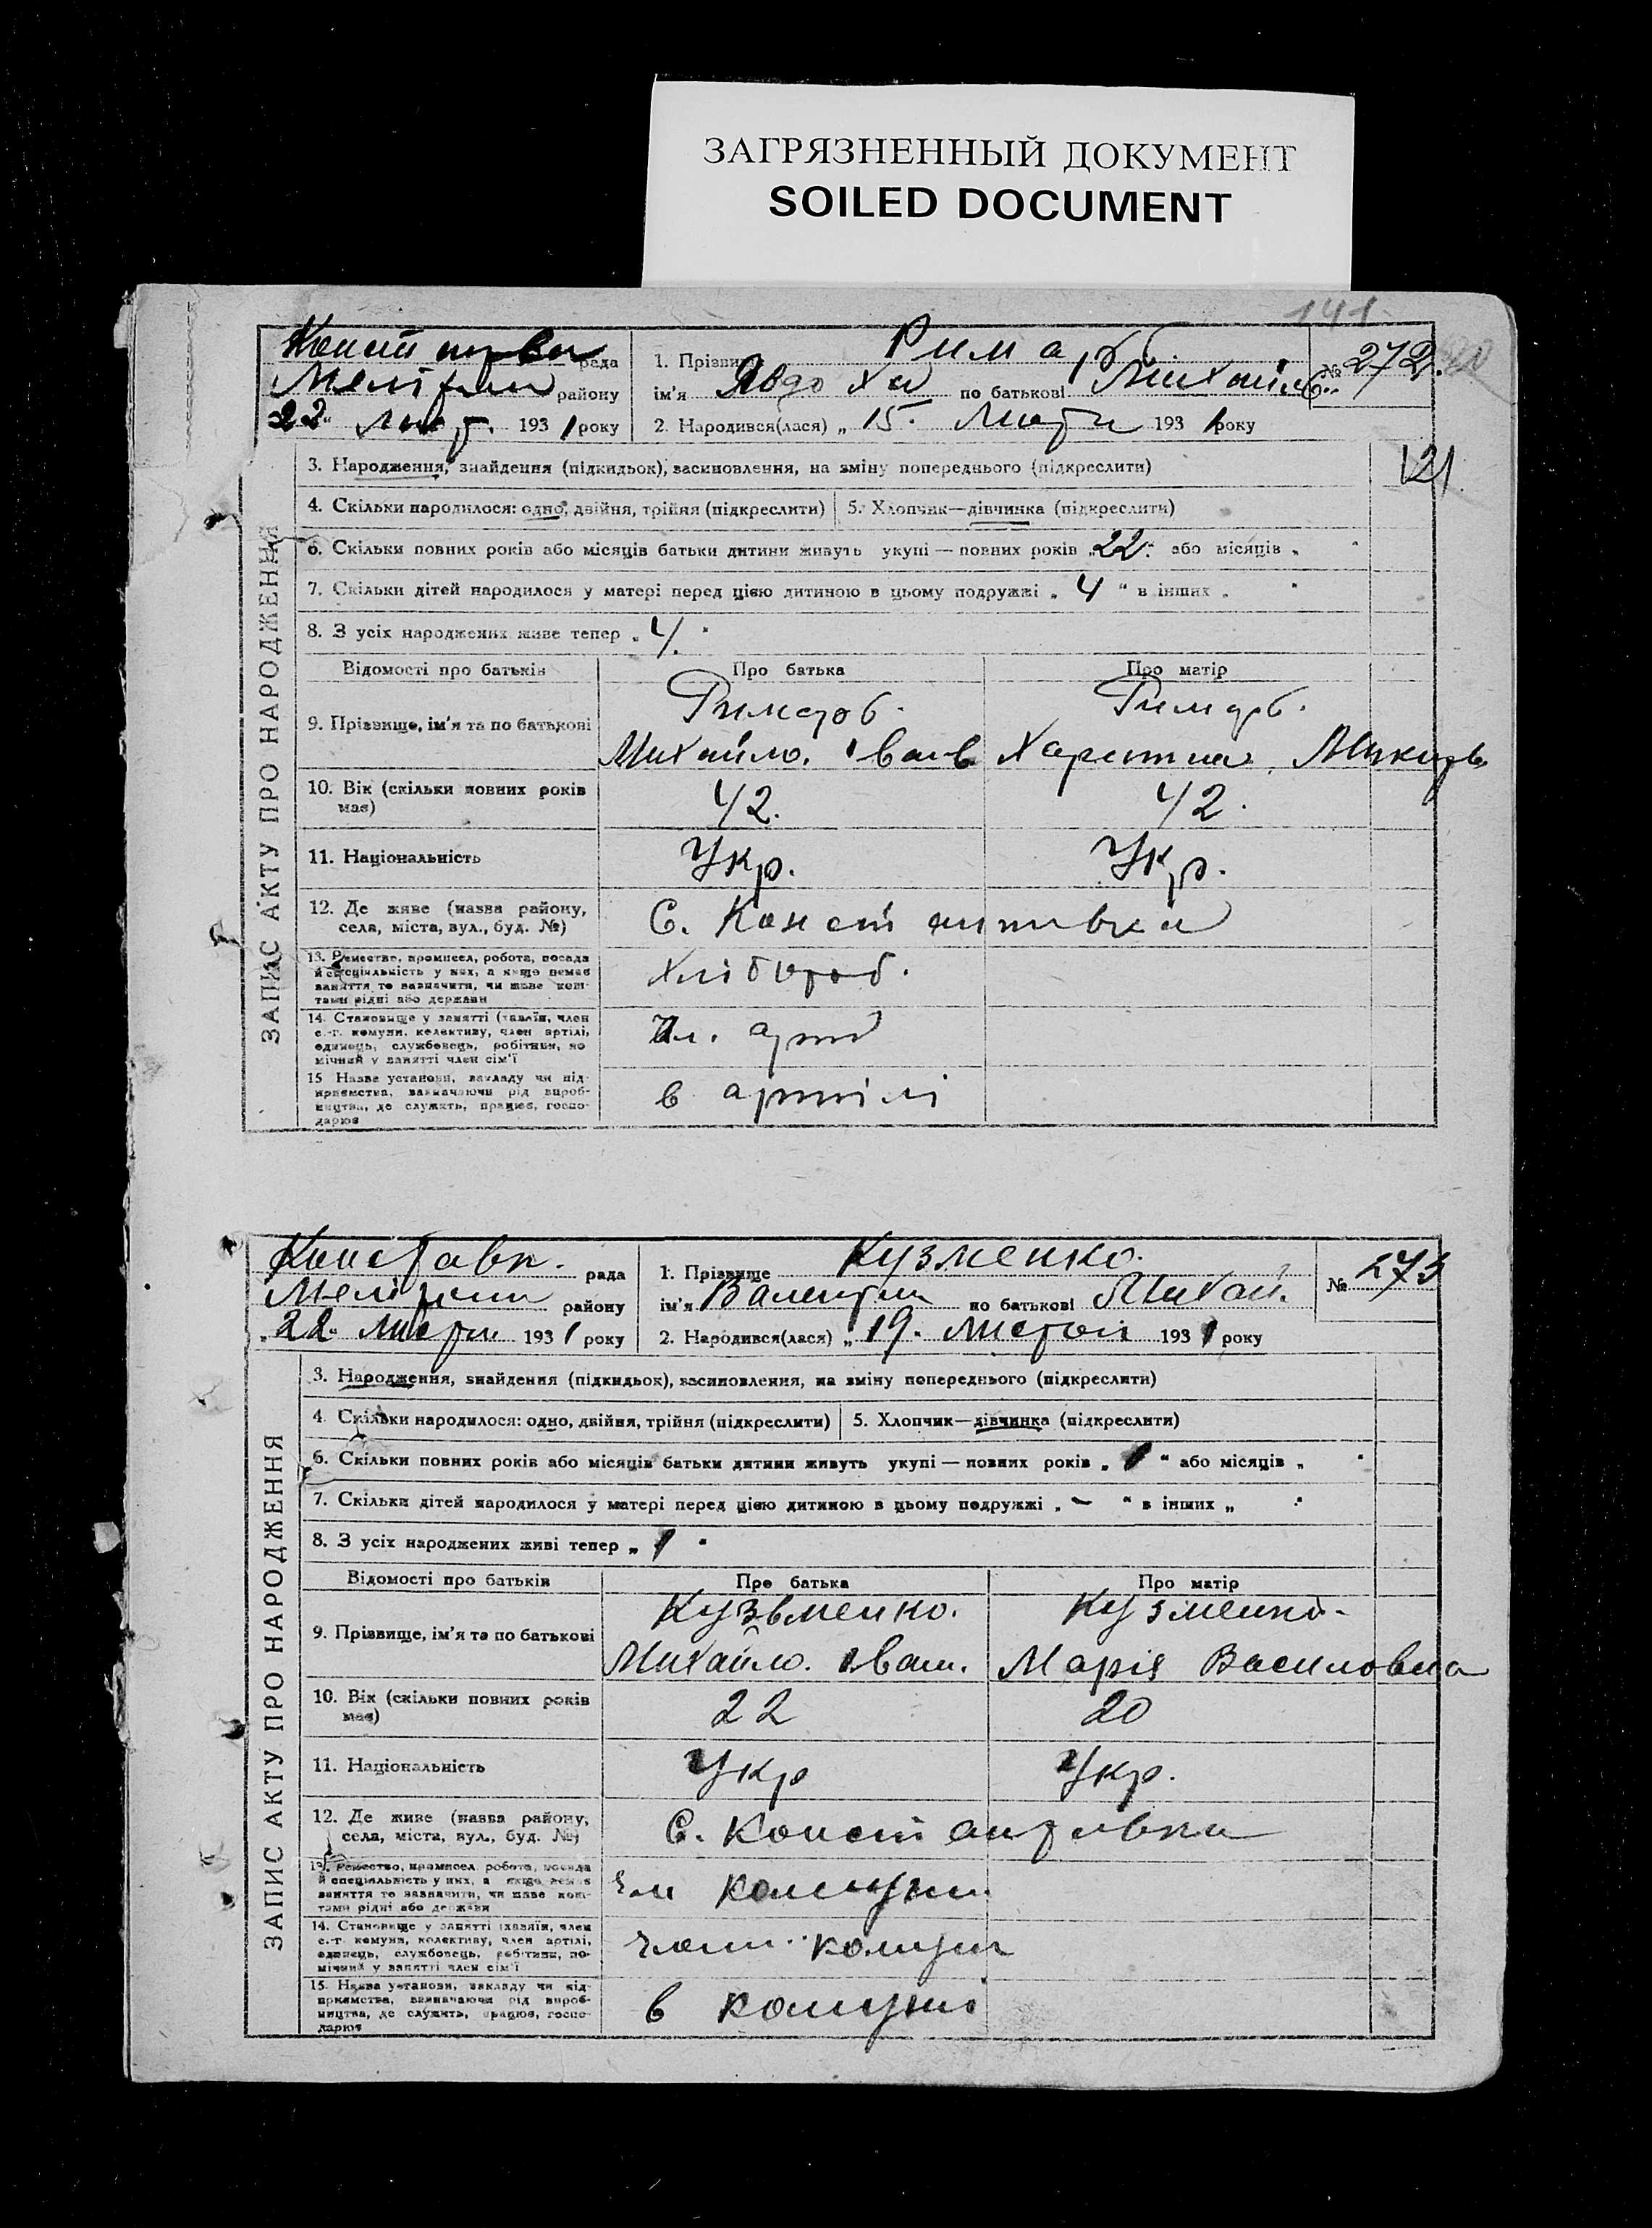 ЗАГРЯЗНЕННЫЙ ДОКУМЕНТ
SOILED DOCUMENT
141
рада
району
22 193 1 року
1. Прізвище
ім'я Явдоха по батькові Михайл.
2. Народився(лася) „ 15. 193 1 року
№ 272.
ЗАПИС АКТУ ПРО НАРОДЖЕННЯ
3. Народження, знайдення (підкидьок), засиновлення, на зміну попереднього (підкреслити)
121
4. Скільки народилося: одно, двійня, трійня (підкреслити) 5. Хлопчик—дівчинка (підкреслити)
6. Скільки повних років або місяців батьки дитини живуть укупі — повних років „22“ або місяців „ “
7. Скільки дітей народилося у матері перед цією дитиною в цьому подружжі „ 4 “ в інших „ “
8. З усіх народжених живе тепер „ 4. “
Відомості про батьків Про батька Про матір
9. Прізвище, ім'я та по батькові
Михайло. Іван
10. Вік (скільки повних років має) 42. 42.
11. Національність Укр. Укр.
12. Де живе (назва району, села, міста, вул., буд. №) С. Константинівка
13. Ремество, промисел, робота, посада й спеціяльність у них, а якщо немає заняття то зазначити, чи живе коштами рідні або держави Хлібороб.
14. Становище у занятті (хазяїн, член с.-г. комуни, колективу, член артілі, одинець, службовець, робітник, помічний у занятті член сім'ї Чл. арт
15 Назва установи, закладу чи підприємства, зазначаючи рід виробництва, де служить, працює, господарює в артілі
рада
району
„22“ 193 1 року
1. Прізвище Кузменко.
ім'я Валентин по батькові Михай.
2. Народився(лася) „ 19. 193 1 року
№ 273
ЗАПИС АКТУ ПРО НАРОДЖЕННЯ
3. Народження, знайдення (підкидьок), засиновлення, на зміну попереднього (підкреслити)
4. Скільки народилося: одно, двійня, трійня (підкреслити) 5. Хлопчик—дівчинка (підкреслити)
6. Скільки повних років або місяців батьки дитини живуть укупі — повних років „ 1 “ або місяців „ “
7. Скільки дітей народилося у матері перед цією дитиною в цьому подружжі „ – “ в інших „ “
8. З усіх народжених живі тепер „ 1 “
Відомості про батьків Про батька Про матір
9. Прізвище, ім'я та по батькові Кузьменко. Кузменко.
Михайло. Іван. Марія Василовна
10. Вік (скільки повних років має) 22 20
11. Національність Укр Укр.
12. Де живе (назва району, села, міста, вул., буд. №) С. Константивка
13. Ремество, промисел, робота, посада й спеціяльність у них, а якщо немає заняття то зазначити, чи живе коштами рідні або держави чл комуни.
14. Становище у занятті (хазяїн, член с.-г. комуни, колективу, член артілі, одинець, службовець, робітник, помічний у занятті член сім'ї член комуни
15. Назва установи, закладу чи підприємства, зазначаючи рід виробництва, де служить, працює, господарює в комуні